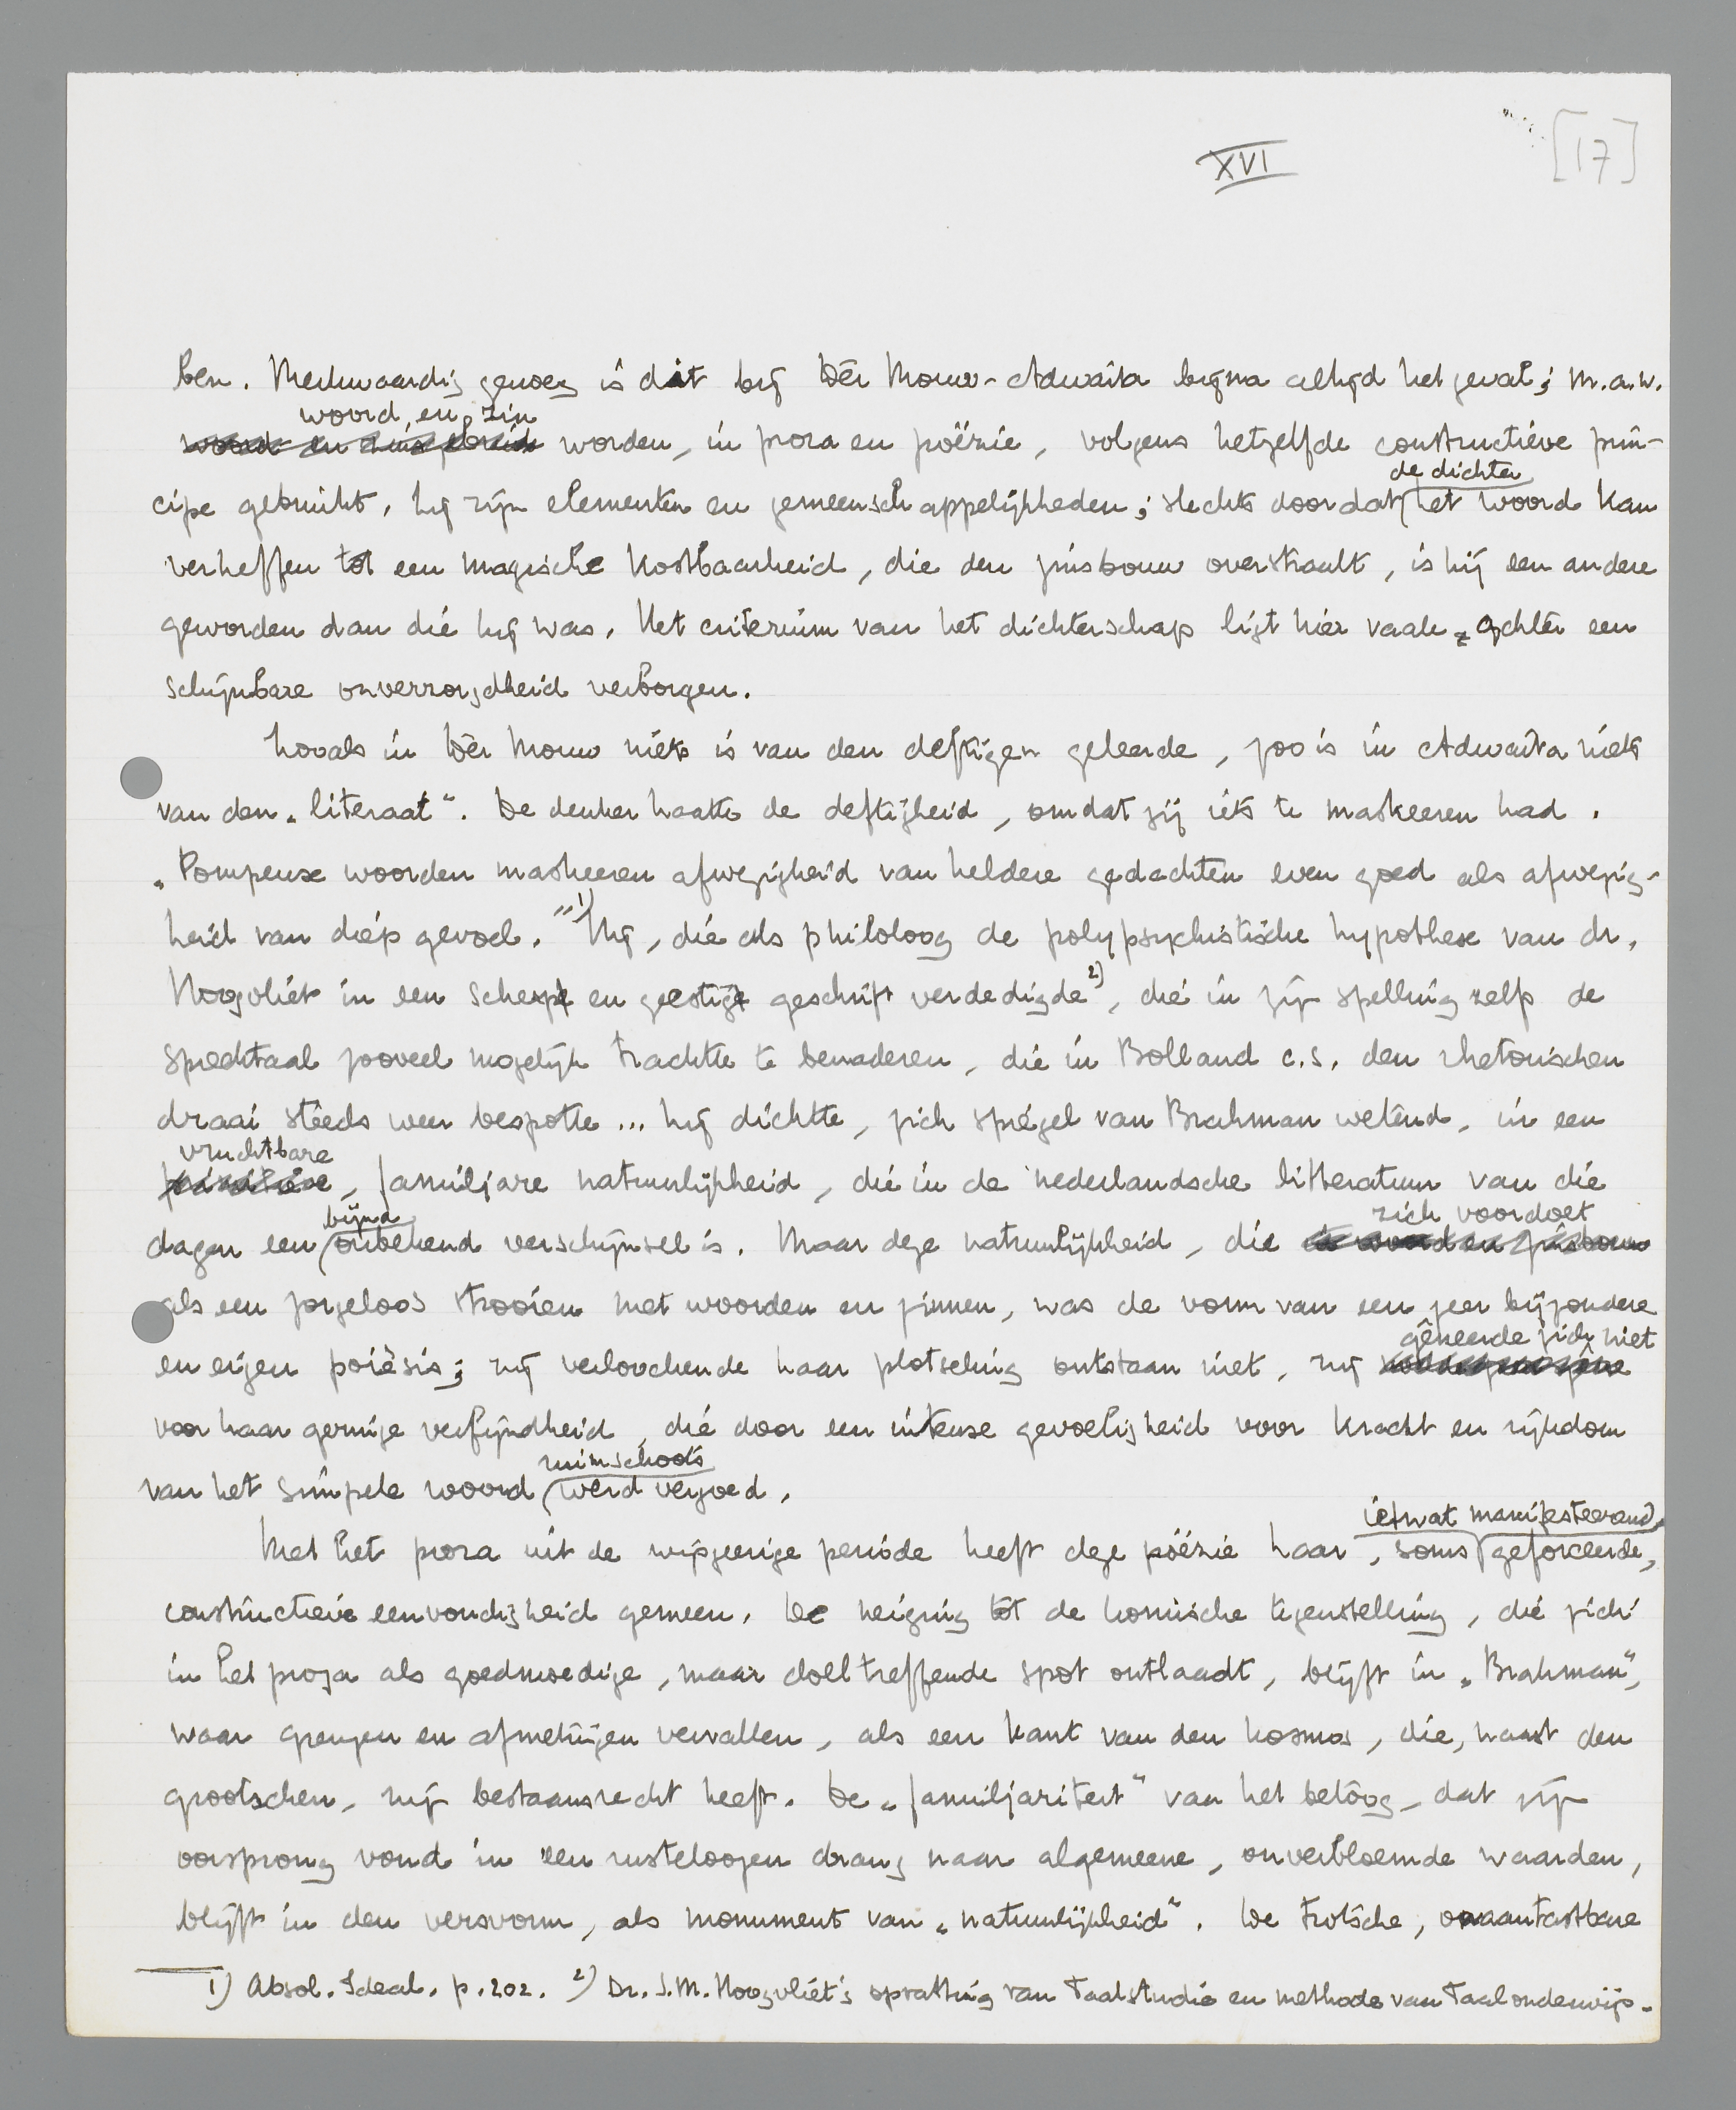 XVI
[17]
ben. Merkwaardig genoeg is dat bij Dèr Mouw-Adwaita bijna altijd het geval; m.a.w.
woord en zin
worden, in proza en poëzie, volgens hetzelfde constructieve prin-
de dichter
cipe gebruikt. Zij zijn elementen en gemeenschappelijkheden; slechts doordat het woord kan
verheffen tot een magische kostbaarheid, die den zinsbouw overstraalt, is hij een andere
geworden dan die hij was. Het criterium van het dichterschap ligt hier vaak achter een
schijnbare onverzorgdheid verborgen.
Zooals in Dèr Mouw niets is van den deftigen geleerde, zoo is in Adwaita niets
van den „literaat". De denker haatte de deftigheid, omdat zij iets te maskeeren had.
„Pompeuse woorden maskeeren afwezigheid van heldere gedachten even goed als afwezig-
heid van diep gevoel." 1) Hij, die als philoloog de polypsychistische hypothese van dr.
Hoogvliet in een scherp en geestig geschrift verdedigde 2), die in zijn spelling zelf de
spreektaal zooveel mogelijk trachtte te benaderen, die in Bolland c.s. den rhetorischen
draai steeds weer bespotte... hij dichtte, zich spiegel van Brahman wetend, in een
vruchtbare
primitieve, familjare natuurlijkheid, die in de nederlandsche litteratuur van die
bijna
zich voordoet
dagen een onbekend verschijnsel is. Maar deze natuurlijkheid, die in woord en zinsbouw
als een zorgeloos strooien met woorden en zinnen, was de vorm van een zeer bijzondere
gêneerde zich niet
en eigen poièsis; zij verloochende haar plotseling ontstaan niet, zij
voor haar geringe verfijndheid, die door een intense gevoeligheid voor kracht en rijkdom
ruimschoots
van het simpele woord werd vergoed.
ietwat manifesteerend,
Met het proza uit de wijsgeerige periode heeft deze poëzie haar, soms geforceerde,
constructieve eenvoudigheid gemeen. De neiging tot de komische tegenstelling, die zich
in het proza als goedmoedige, maar doeltreffende spot ontlaadt, blijft in „Brahman",
waar grenzen en afmetingen vervallen, als een kant van den kosmos, die, naast den
grootschen, zijn bestaansrecht heeft. De „familjariteit" van het betoog, dat zijn
oorsprong vond in een rusteloozen drang naar algemeene, onverbloemde waarden,
blijft in den versvorm, als monument van „natuurlijkheid". De trotsche, onaantastbare
1) Absol. Ideal. p. 202. 2) Dr. J.M. Hoogvliet's opvatting van Taalstudie en methode van Taalonderwijs.